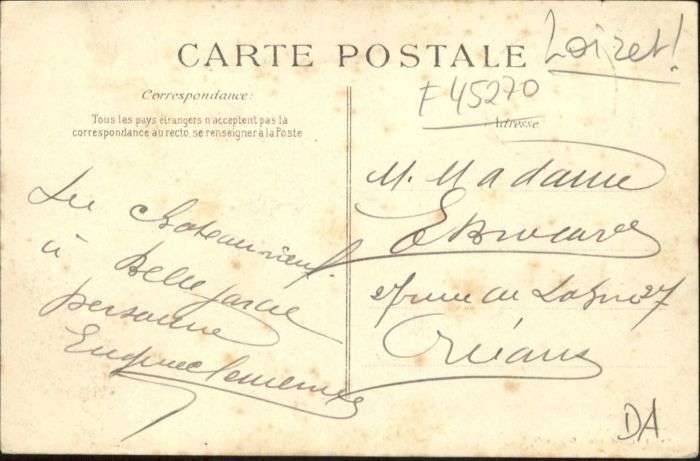 CARTE POSTALE
Loiret!
F 45270
Correspondance:
Adresse
Tous les pays étrangers n'acceptent pas la
correspondance au recto, se renseigner à la Poste
De Chateauneuf
à Bellegarde
personne
M. Madame
E Brocard
27 rue de 27
Orléans
DA